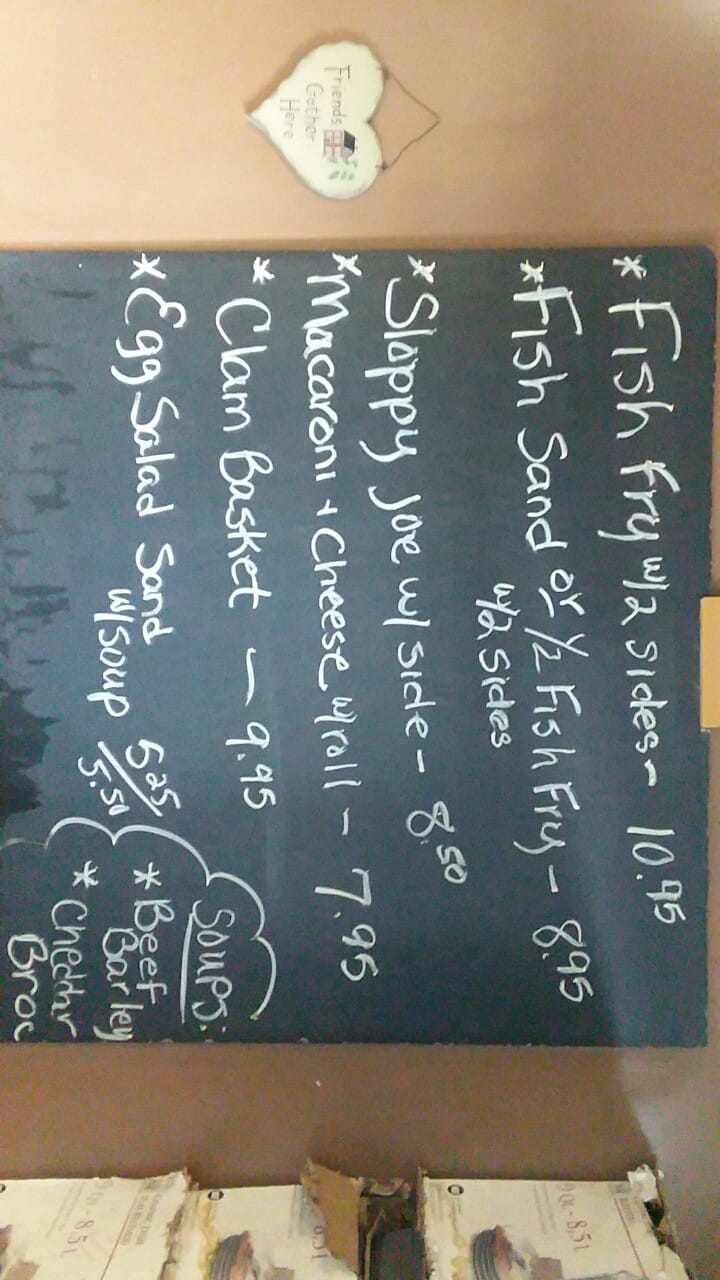 Friends
Gather
Here
* Fish Fry w/2 sides - 10.95
* Fish Sand or 1/2 Fish Fry - 8.95
w/2 sides
* Sloppy Joe w/ side - 8.50
* Macaroni + Cheese w/roll - 7.95
* Clam Basket - 9.95
* Egg Salad Sand 5.25/
w/soup 5.50
Soups:
* Beef
Barley
* Cheddr
Broc
8,5L